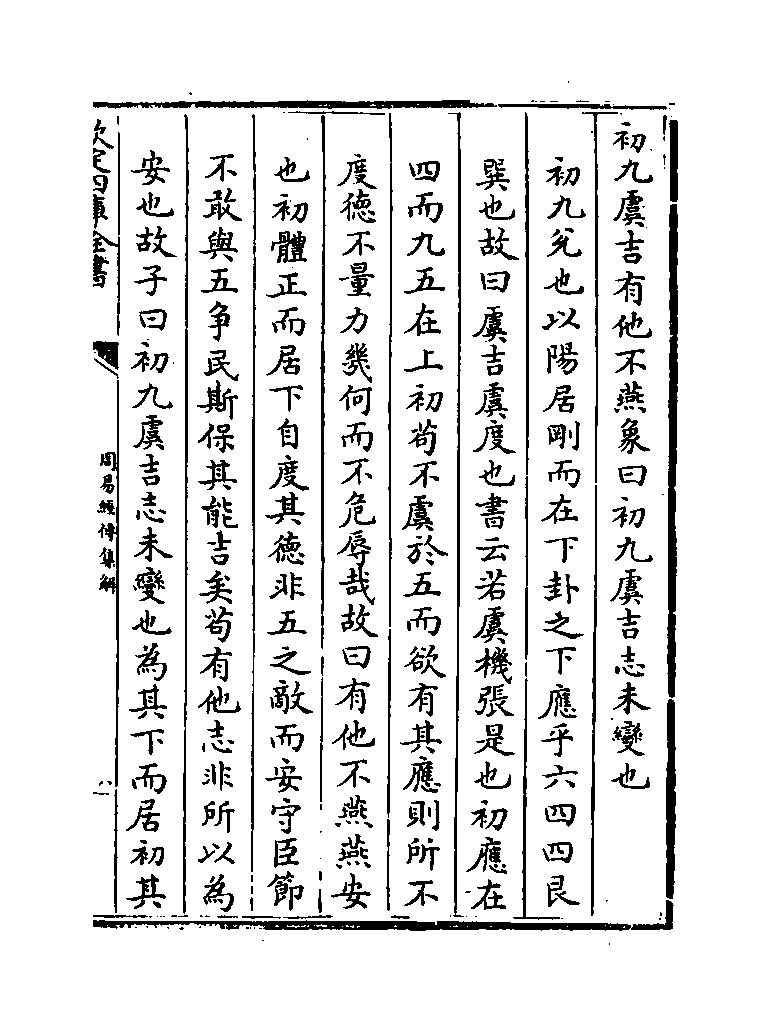 初九虞吉有他不燕象曰初九虞吉志未變也
初九兊也以陽居剛而在下卦之下應乎六四四艮
巽也故曰虞吉虞度也書云若虞機張是也初應在
四而九五在上初苟不虞於五而欲有其應則所不
度德不量力幾何而不危辱哉故曰有他不燕燕安
也初體正而居下自度其德非五之敵而安守臣節
不敢與五争民斯保其能吉矣苟有他志非所以為
安也故子曰初九虞吉志未變也為其下而居初其
欽定四庫全書
周易經傳集解